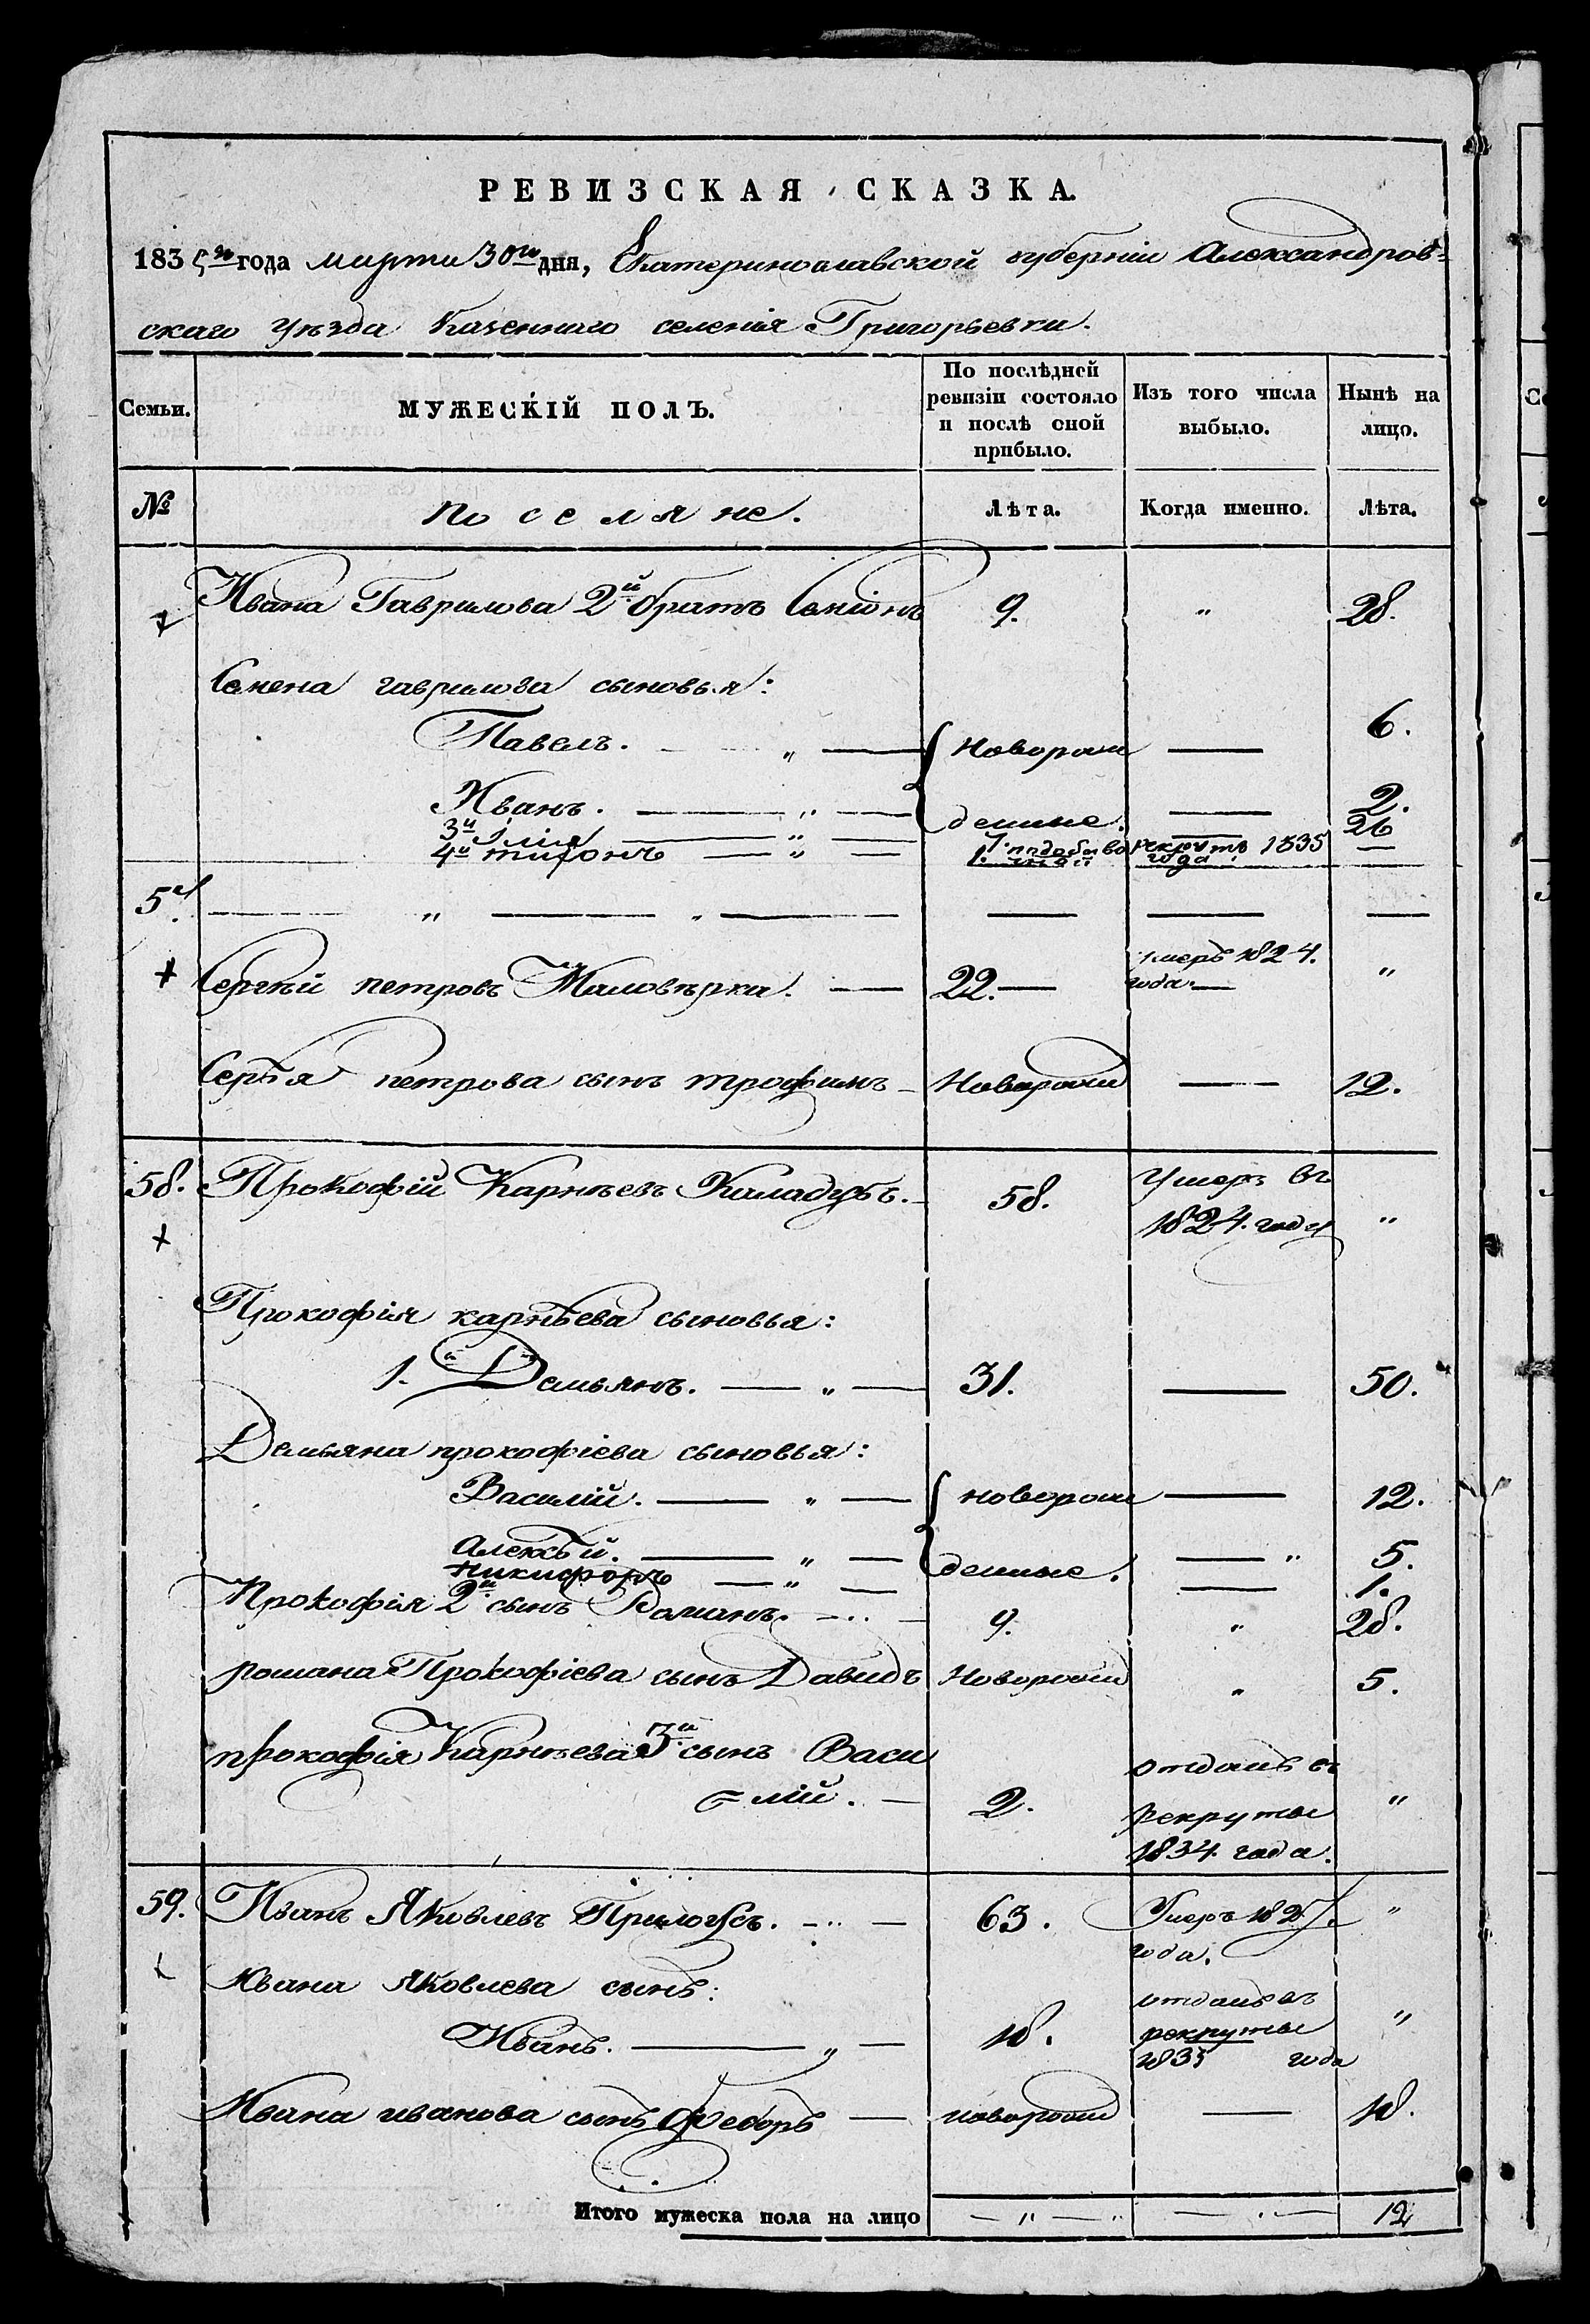 РЕВИЗСКАЯ СКАЗКА.
1835го года марта 30го дня, Екатеринославской губерніи Александров-
скаго уѣзда Казеннаго селенія Григорьевки.
Семьи.
МУЖЕСКІЙ ПОЛЪ.
По послѣдней ревизіи состояло и послѣ оной прибыло.
Изъ того числа выбыло.
Нынѣ на лицо.
№
Поселяне.
Лѣта.
Когда именно.
Лѣта.
Ивана Гаврилова 2й братъ Семіонъ 9. " 28.
Семена гаврилова сыновья:
Павелъ. — " — новорож — 6.
Иванъ. — " — денные. — 2.
3й Илія — " — рекрутъ 1835 26
4й тихонъ — " — 1. года —
5 — " — " — — — —
Сергѣй петровъ Маловѣрка. — 22. — умеръ 1824. года. — "
Сергѣя петрова сынъ трофимъ — Новорожд — 12.
58. Прокофій Карнѣевъ Каладубъ. — 58. Умеръ въ 1824. году "
Прокофія карнѣева сыновья:
1.й Демьянъ. — " — 31. — 50.
Демьяна прокофіева сыновья:
Василій. — " — новорож — 12.
Алексѣй. — " — денные. — " 5.
Никифоръ — " — — 1.
Прокофія 2й сынъ Романъ. — 9. " 28.
романа Прокофіева сынъ Давидъ Новорожд " 5.
прокофія Карнѣева 3й сынъ Васи
лій. — 2. отданъ въ рекруты 1834 года. "
59. Иванъ Яковлевъ Прилогусъ. — 63. Умеръ 1827. года. "
Ивана Яковлева сынъ:
Иванъ. — " — 18. отданъ въ рекруты 1835 года "
Ивана иванова сынъ Федоръ — новорожд — 18.
Итого мужеска пола на лицо — " — — " — 12